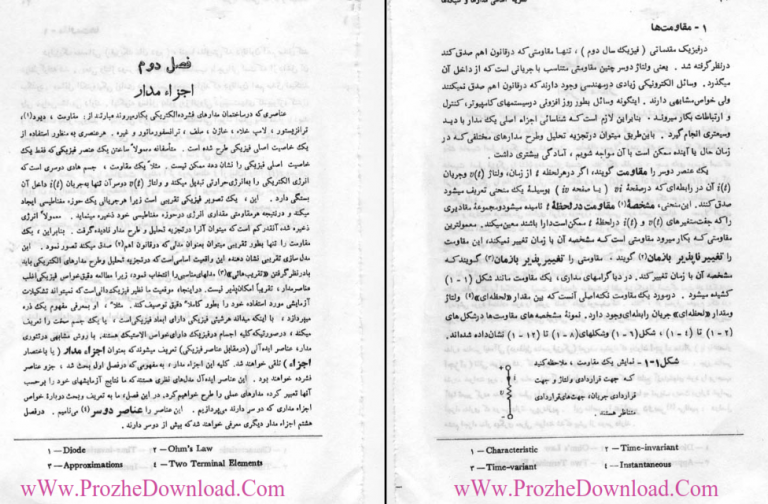 فصل دوم
اجزاء مدار
عناصری که درساختمان مدارهای فشرده‌الکتریکی بکارمیروند عبارتند از: مقاومت ، دیود(۱)،
ترانزیستور، لامپ خلاء ، خازن ، سلف ، ترانسفورماتور و غیره . هرعنصری به منظور استفاده از
یک خاصیت اصلی فیزیکی طرح شده است . متأسفانه معمولاً ساختن یک عنصر فیزیکی که فقط یک
خاصیت اصلی فیزیکی را نشان دهد ممکن نیست . مثلاً یک مقاومت ، جسم هادی دوسری است که
انرژی الکتریکی را بانرژی حرارتی تبدیل میکند و ولتاژ v(t) دوسر آن تنها به جریان i(t) داخل آن
بستگی دارد . این ، یک تصویر فیزیکی تقریبی است زیرا هرجریانی یک حوزه مغناطیسی ایجاد
میکند و درنتیجه هرمقاومتی مقداری انرژی درحوزه مغناطیسی خود ذخیره مینماید . معمولاً انرژی
ذخیره شد آنقدر کم است که میتوان آنرا درتجزیه و تحلیل و طرح مدار نادیده گرفت . بنابراین ، یک
مقاومت را تنها بطور تقریبی میتوان بعنوان مدلی که درقانون اهم(۲) صدق میکند تصور نمود . این
مدل سازی تقریبی نشان دهنده این واقعیت اساسی است که درتجزیه و تحلیل وطرح مدارهای الکتریکی باید
بادرنظرگرفتن «تقریب‌هائی»(۳) مدلهای مناسبی را انتخاب نمود، زیرا مطالعه دقیق خواص فیزیکی اغلب
عناصرمدار، تقریباً امکان‌پذیر نیست. دراینجا، موقعیت ما نظیر فیزیک‌دانی است که نمیتواند تشکیلات
آزمایشی مورد استفاده خود را بطور کاملاً دقیق توصیف کند. مثلاً ، او بمعرفی مفهوم یک ذره
میپردازد ، با اینکه میداند هرشیئی فیزیکی دارای ابعاد فیزیکی است ، یا یک جسم سخت را تعریف
میکند ، درصورتیکه کلیه اجسام درفیزیک دارای خواص الاستیک هستند. با روش مشابهی درتئوری
مدار، عناصر ایده‌آلی (درمقابل عناصر فیزیکی) تعریف میشوند که بعنوان اجزاء مدار ( یا باختصار
اجزاء ) تلقی خواهند شد. کلیه این اجزاء مدار ، به مفهومی که درفصل اول بحث شد ، جزو عناصر
فشرده خواهند بود . این عناصر ایده‌آل مدل‌های نظری هستند که ما نتایج آزمایشهای خود را برحسب
آنها تعبیر کرده مدارهای عملی را طرح خواهیم کرد. در این فصل، ما به تعریف و بحث درباره خواص
اجزاء مداری که دو سر دارند میپردازیم . این عناصر را عناصر دوسر(٤) می‌نامیم. درفصل
هشتم اجزاء مدار دیگری معرفی خواهند شد که بیش از دوسر دارند .
۱ — Diode ۲ — Ohm's Law
۳ — Approximations ٤ — Two Terminal Elements
wWw.ProzheDownload.Com
۱ - مقاومت‌ها
درفیزیک مقدماتی ( فیزیک سال دوم ) ، تنها مقاومتی که درقانون اهم صدق کند
درنظر گرفته شد . یعنی ولتاژ دوسر چنین مقاومتی متناسب با جریانی است که از داخل آن
میگذرد. وسائل الکترونیکی زیادی درمهندسی وجود دارند که درقانون اهم صدق نمیکنند
ولی خواص مشابهی دارند . اینگونه وسائل بطور روز افزونی درسیستمهای کامپیوتر، کنترل
و ارتباطات بکار میروند . بنابراین لازم است که شناسائی اجزاء اصلی یک مدار با دید
وسیعتری انجام گیرد . با این طریق میتوان درتجزیه تحلیل وطرح مدارهای مختلفی که در
زمان حال یا آینده ممکن است با آن مواجه شویم ، آمادگی بیشتری داشت .
یک عنصر دوسر را مقاومت گویند، اگر درهرلحظه t از زمان، ولتاژ v(t) وجریان
i(t) آن در رابطه‌ای که درصفحهٔ vi ( یا صفحه iv ) بوسیلهٔ یک منحنی تعریف میشود
صدق کنند. این منحنی، مشخصهٔ(۱) مقاومت در لحظهٔ t نامیده میشود و مجموعهٔ مقادیری
را که جفت متغیرهای v(t) و i(t) درلحظهٔ t ممکن است دارا باشند معین میکند. معمولترین
مقاومتی که بکار میرود مقاومتی است که مشخصه آن با زمان تغییر نمیکند، این مقاومت
را تغییر ناپذیر بازمان(۲) گویند . مقاومتی را تغییر پذیر بازمان(۳) گویند که
مشخصه آن با زمان تغییر کند. در دیاگرامهای مداری، یک مقاومت مانند شکل (۱ - ۱)
کشیده میشود . درمورد یک مقاومت نکته اصلی آنست که بین مقدار «لحظه‌ای»(٤) ولتاژ
ومقدار «لحظه‌ای» جریان رابطه‌ای وجود دارد. نمونهٔ مشخصه های مقاومت ها درشکل های
(۲ - ۱) تا (٤ - ۱) ، شکل (٦ - ۱) وشکلهای (۸ - ۱) تا (۱۲ - ۱) نشان داده شده‌اند.
شکل ۱-۱ - نمایش یک مقاومت ، ملاحظه کنید
که جهت قراردادی ولتاژ و جهت
قراردادی جریان، جهت‌های قراردادی
متناظر هستند .
۱ — Characteristic ۲ — Time-invariant
۳ — Time-variant ٤ — Instantaneous
wWw.ProzheDownload.Com